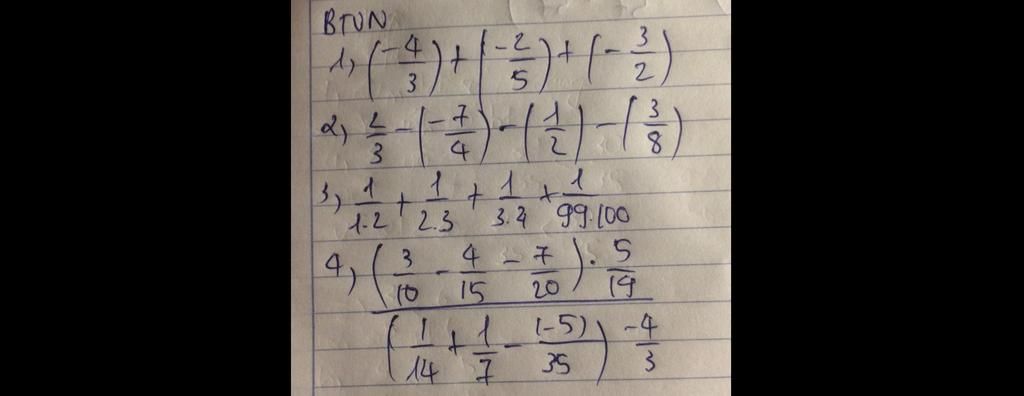 BTVN
1, (-4/3) + (-2/5) + (-3/2)
2, 2/3 - (-7/4) - (1/2) - (3/8)
3, 1/1.2 + 1/2.3 + 1/3.4 + 1/99.100
4, (3/10 - 4/15 - 7/20) . 5/19
(1/14 + 1/7 - (-5)/35) -4/3